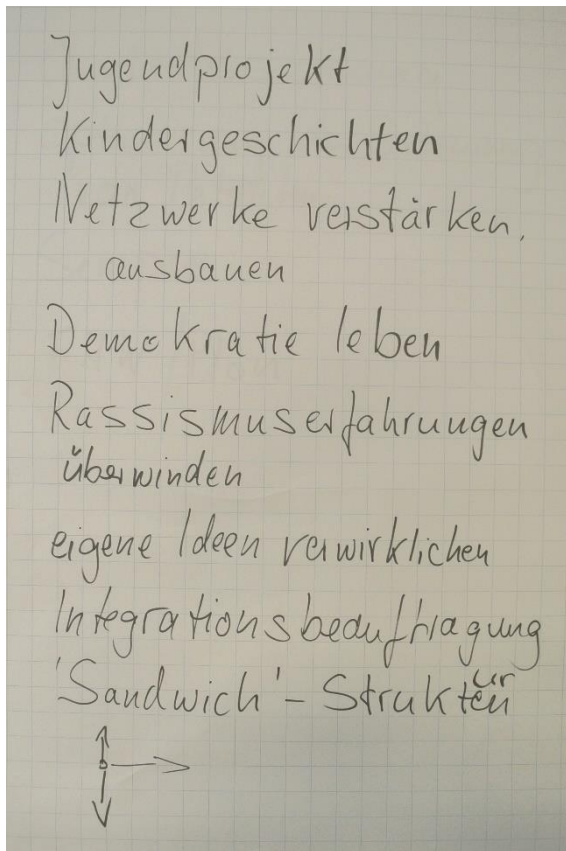 Jugendprojekt
Kindergeschichten
Netzwerke verstärken,
ausbauen
Demokratie leben
Rassismuserfahrungen
überwinden
eigene Ideen verwirklichen
Integrationsbeauftragung
'Sandwich' - Struktur